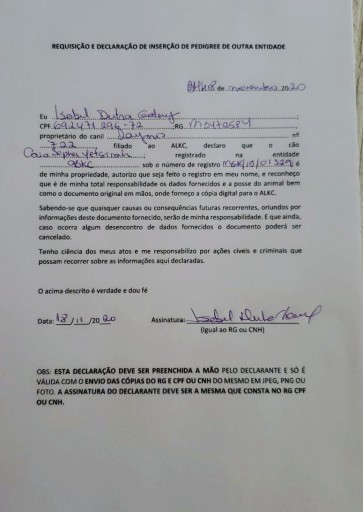 REQUISIÇÃO E DECLARAÇÃO DE INSERÇÃO DE PEDIGREE DE OUTRA ENTIDADE
18 de novembro /20 20
Eu Isabel Dutra
CPF 692471296-72 RG
proprietário do canil nº
722 filiado ao ALKC, declaro que o cão
registrado na entidade
sob o número de registro é
de minha propriedade, autorizo que seja feito o registro em meu nome, e reconheço
que é de minha total responsabilidade os dados fornecidos e a posse do animal bem
como o documento original em mãos, onde forneço a cópia digital para o ALKC.
Sabendo-se que quaisquer causas ou consequências futuras recorrentes, oriundos por
informações deste documento fornecido, serão de minha responsabilidade. E que ainda,
caso ocorra algum desencontro de dados fornecidos o documento poderá ser
cancelado.
Tenho ciência dos meus atos e me responsabilizo por ações cíveis e criminais que
possam recorrer sobre as informações aqui declaradas.
O acima descrito é verdade e dou fé
Data: 18 / 11 /20 20 Assinatura: Isabel Dutra
(Igual ao RG ou CNH)
OBS: ESTA DECLARAÇÃO DEVE SER PREENCHIDA A MÃO PELO DECLARANTE E SÓ É
VÁLIDA COM O ENVIO DAS CÓPIAS DO RG E CPF OU CNH DO MESMO EM JPEG, PNG OU
FOTO. A ASSINATURA DO DECLARANTE DEVE SER A MESMA QUE CONSTA NO RG CPF
OU CNH.